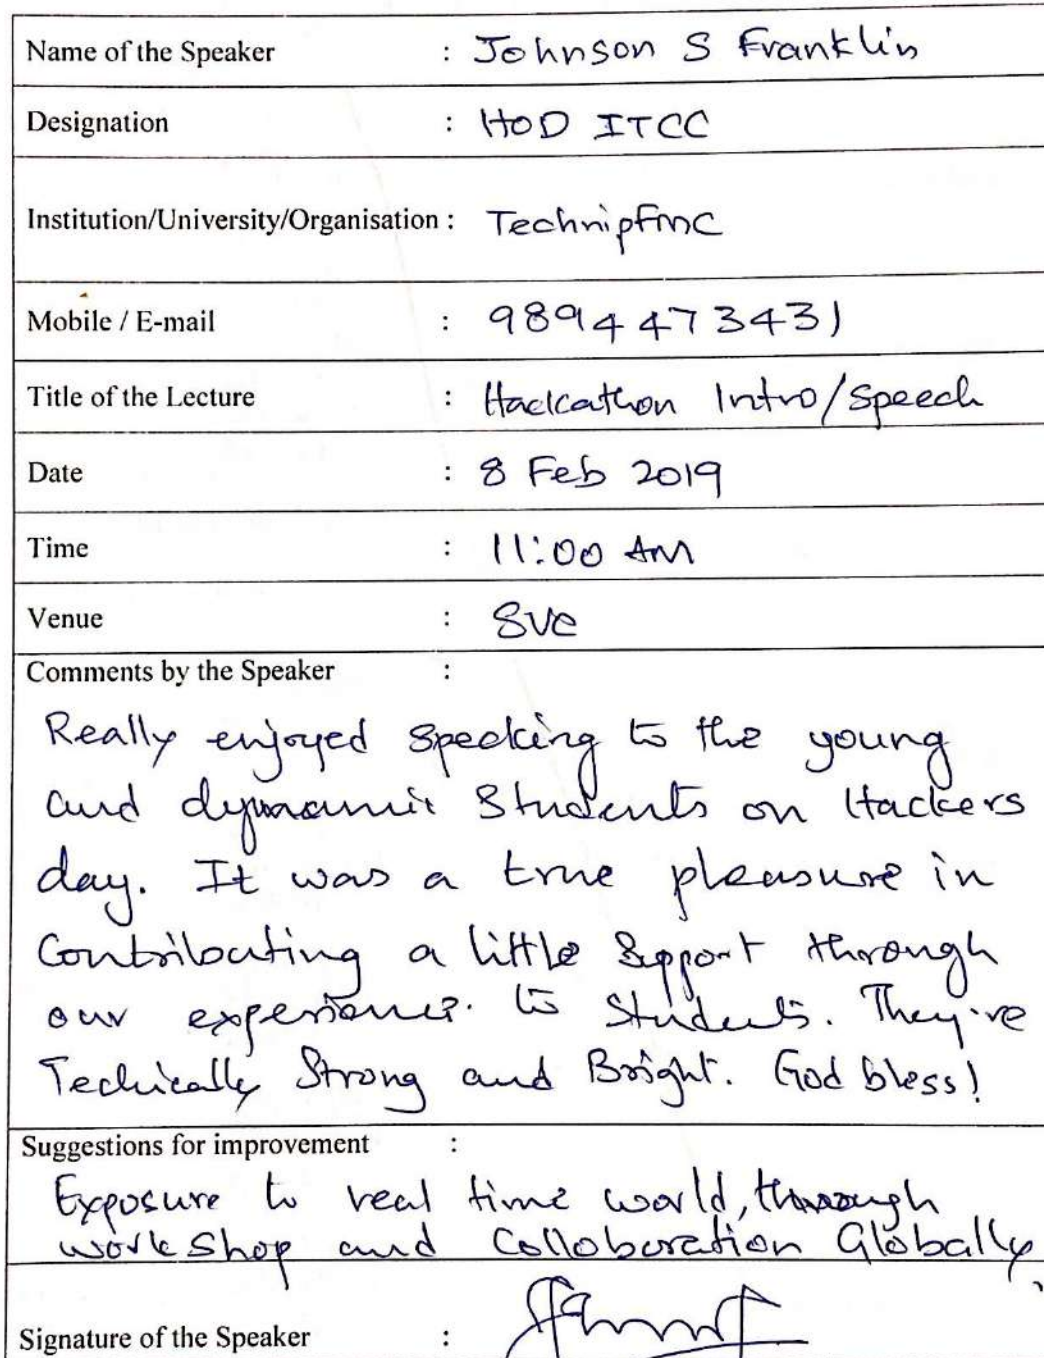 Name of the Speaker : Johnson S Franklin
Designation : HOD ITCC
Institution/University/Organisation : TechnipFMC
Mobile / E-mail : 9894473431
Title of the Lecture : Hackathon Intro/Speech
Date : 8 Feb 2019
Time : 11:00 AM
Venue : SVC
Comments by the Speaker :
Really enjoyed speaking to the young
and dynamic Students on Hackers
day. It was a true pleasure in
Contributing a little Support through
our experience. to Students. They're
Techically Strong and Bright. God bless!
Suggestions for improvement :
Exposure to real time world, through
workshop and Colloboration Globally.
Signature of the Speaker :